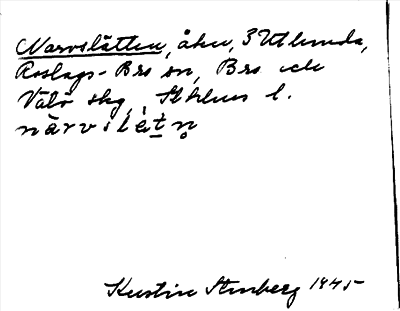 Narvslätten, åker, 3 Utlunda,
Roslags-Bro sn, Bro och
Vätö skg, Sthlms l.
närvslätn̥
Kerstin Stenberg 1945